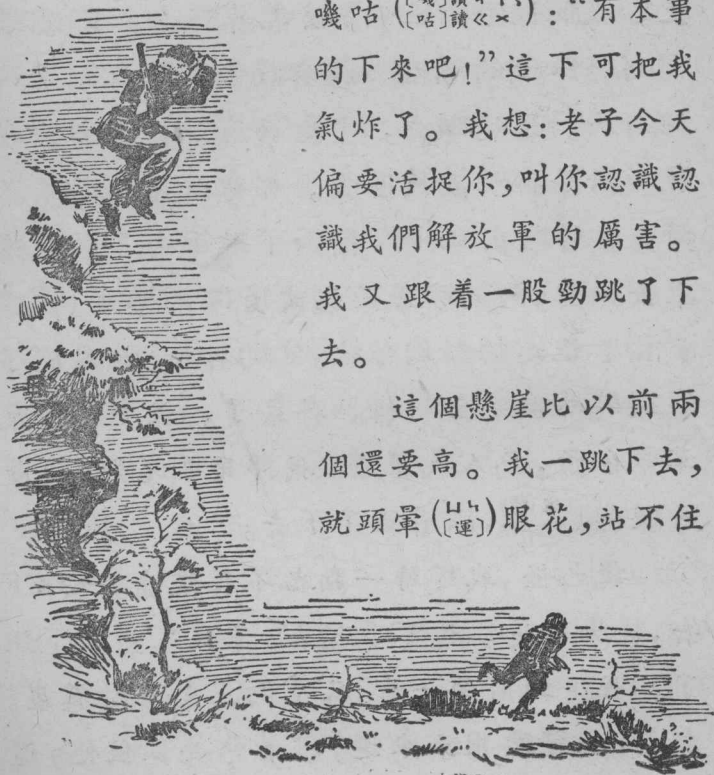 嘰咕（〔嘰〕讀ㄐㄧ〔咕〕讀ㄍㄨ）：“有本事
的下來吧！”這下可把我
氣炸了。我想：老子今天
偏要活捉你，叫你認識認
識我們解放軍的厲害。
我又跟着一股勁跳了下
去。
這個懸崖比以前兩
個還要高。我一跳下去，
就頭暈（ㄩㄣ〔運〕）眼花，站不住